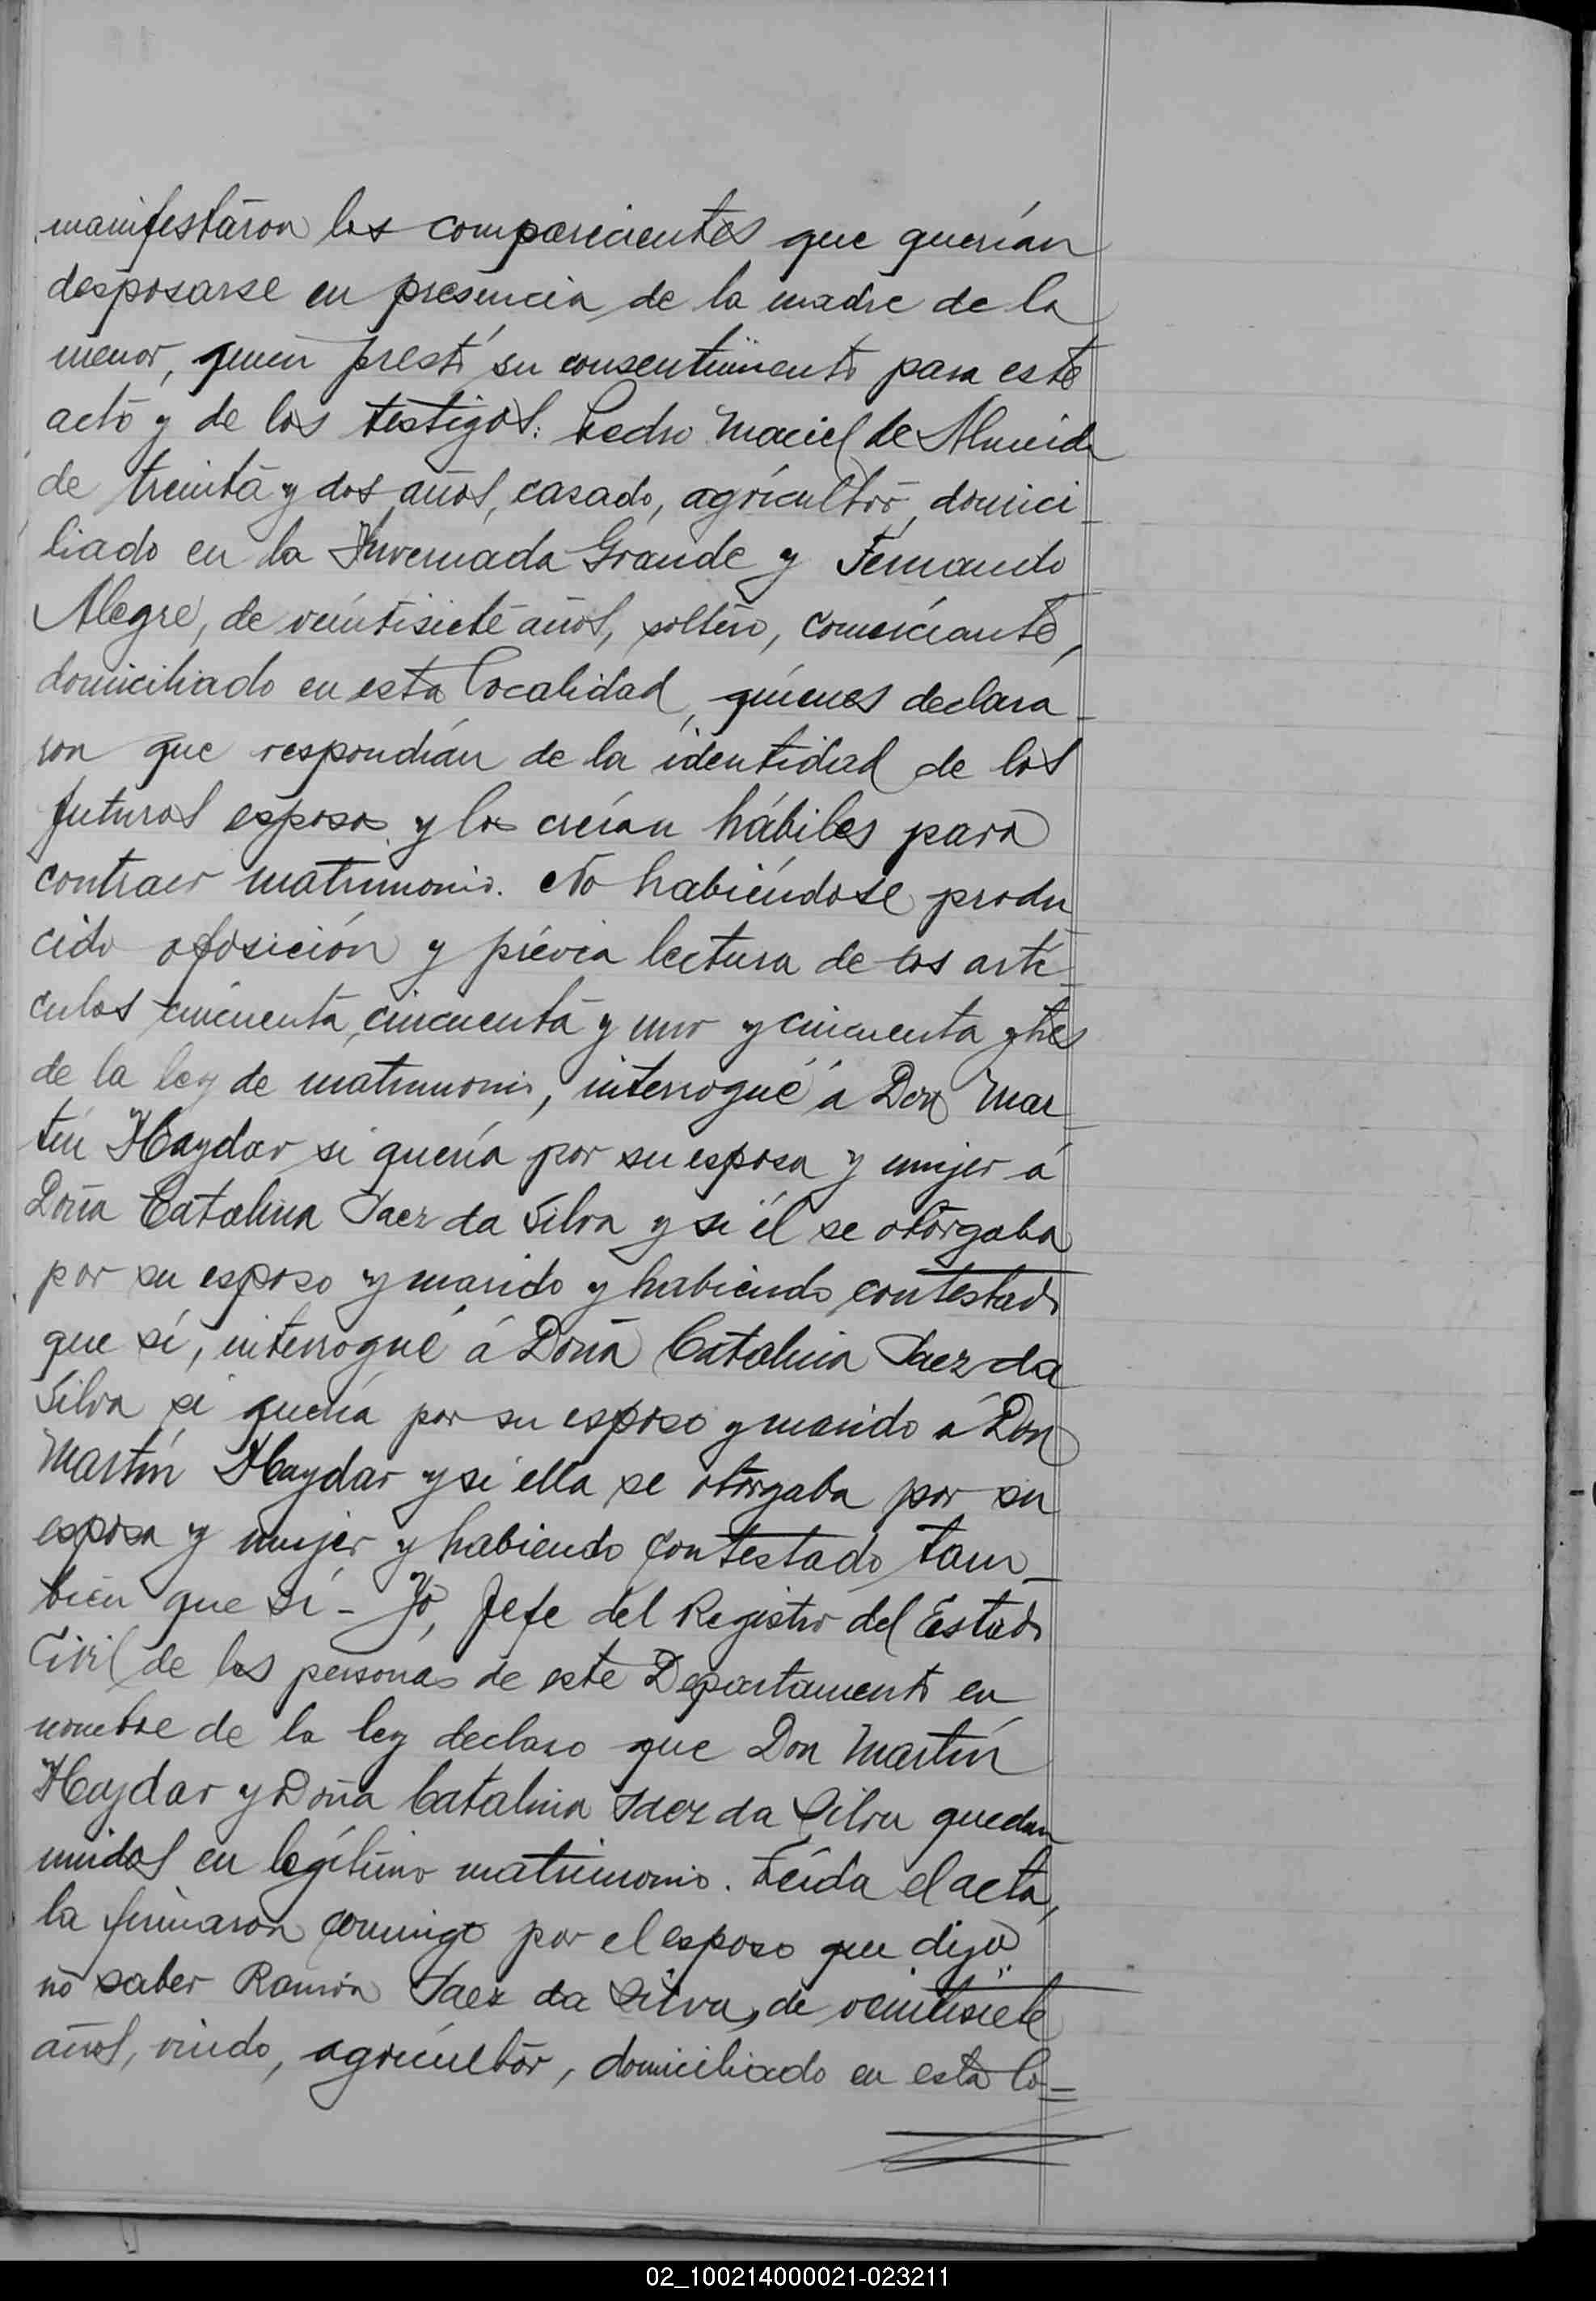 manifestaron los comparecientes que querían
desposarse en presencia de la madre de la
menor, quien prestó su consentimiento para este
acto y de los testigos: Pedro Maciel de Almeida
de treinta y dos años, casado, agricultor, domici-
liado en la Invernada Grande y Fernando
Alegre, de veintisiete años, soltero, comerciante,
domiciliado en esta localidad, quienes declara-
ron que respondían de la identidad de los
futuros esposos y los creían hábiles para
contraer matrimonio. No habiéndose produ
cido oposición y prévia lectura de los artí-
culos cincuenta, cincuenta y uno y cincuenta y tres
de la ley de matrimonio, interrogué á Don Mar-
tín Haydar si quería por su esposa y mujer á
Doña Catalina Saez da Silva y si él se otorgaba
por su esposo y marido y habiendo contestado
que sí, interrogué á Doña Catalina Saez da
Silva si quería por su esposo y marido á Don
Martín Haydar y si ella se otorgaba por su
esposa y mujer y habiendo contestado tam-
bién que sí - Yo, Jefe del Registro del Estado
Civil de las personas de este Departamento en
nombre de la ley declaro que Don Martín
Haydar y Doña Catalina Saez da Silva quedan
unidos en legítimo matrimonio. Leída el acta,
la firmaron conmigo por el esposo que dijo
no saber Ramón Saez da Silva, de veintisiete
años, viudo, agricultor, domiciliado en esta lo-
02_100214000021-023211